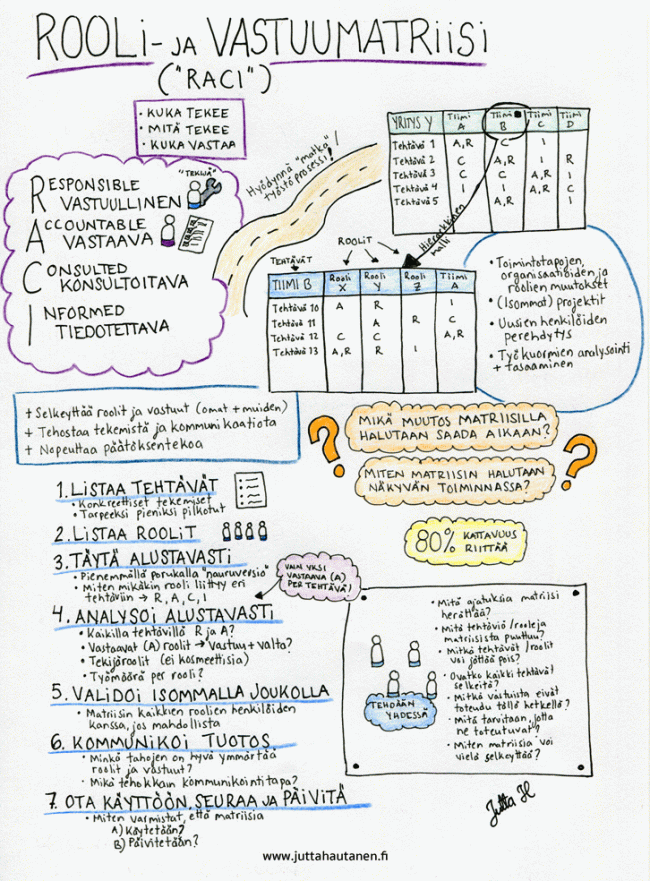 ROOLI- JA VASTUUMATRIISI
("RACI")
• KUKA TEKEE
• MITÄ TEKEE
• KUKA VASTAA
RESPONSIBLE "TEKIJÄ"
VASTUULLINEN
ACCOUNTABLE
VASTAAVA
CONSULTED
KONSULTOITAVA
INFORMED
TIEDOTETTAVA
Hyödynnä "matka"/
työstöprosessi!
YRITYS Y Tiimi A Tiimi B Tiimi C Tiimi D
Tehtävä 1 A,R C I
Tehtävä 2 C A,R I R
Tehtävä 3 C C A,R I
Tehtävä 4 I I A,R C
Tehtävä 5 A,R I
Hierarkkinen
malli
TEHTÄVÄT
ROOLIT
TIIMI B Rooli X Rooli Y Rooli Z Tiimi A
Tehtävä 10 A R I
Tehtävä 11 A R C
Tehtävä 12 C C A,R
Tehtävä 13 A,R R I
• Toimintotapojen,
organisaatioiden ja
roolien muutokset
• (Isommat) projektit
• Uusien henkilöiden
perehdytys
• Työkuormien analysointi
+ tasaaminen
+ Selkeyttää roolit ja vastuut (omat + muiden)
+ Tehostaa tekemistä ja kommunikaatiota
+ Nopeuttaa päätöksentekoa
? MIKÄ MUUTOS MATRIISILLA
HALUTAAN SAADA AIKAAN?
MITEN MATRIISIN HALUTAAN
NÄKYVÄN TOIMINNASSA? ?
80% KATTAVUUS
RIITTÄÄ
1. LISTAA TEHTÄVÄT
• Konkreettiset tekemiset
• Tarpeeksi pieniksi pilkotut
2. LISTAA ROOLIT
3. TÄYTÄ ALUSTAVASTI
• Pienemmällä porukalla "nauruversio"
• Miten mikäkin rooli liittyy eri
tehtäviin → R, A, C, I
VAIN YKSI
VASTAAVA (A)
PER TEHTÄVÄ!
4. ANALYSOI ALUSTAVASTI
• Kaikilla tehtävillä R ja A?
• Vastaavat (A) roolit → Vastuu + valta?
• Tekijäroolit (ei kosmeettisia)
• Työmäärä per rooli?
5. VALIDOI ISOMMALLA JOUKOLLA
• Matriisin kaikkien roolien henkilöiden
kanssa, jos mahdollista
6. KOMMUNIKOI TUOTOS
• Minkä tahojen on hyvä ymmärtää
roolit ja vastuut?
• Mikä tehokkain kommunikointitapa?
7. OTA KÄYTTÖÖN, SEURAA JA PÄIVITÄ
• Miten varmistat, että matriisia
A) Käytetään?
B) Päivitetään?
TEHDÄÄN
YHDESSÄ
• Mitä ajatuksia matriisi
herättää?
• Mitä tehtäviä/rooleja
matriisista puuttuu?
• Mitkä tehtävät/roolit
voi jättää pois?
• Ovatko kaikki tehtävät
selkeitä?
• Mitkä vastuista eivät
toteudu tällä hetkellä?
• Mitä tarvitaan, jotta
ne toteutuvat?
• Miten matriisia voi
vielä selkeyttää?
Jutta H
www.juttahautanen.fi